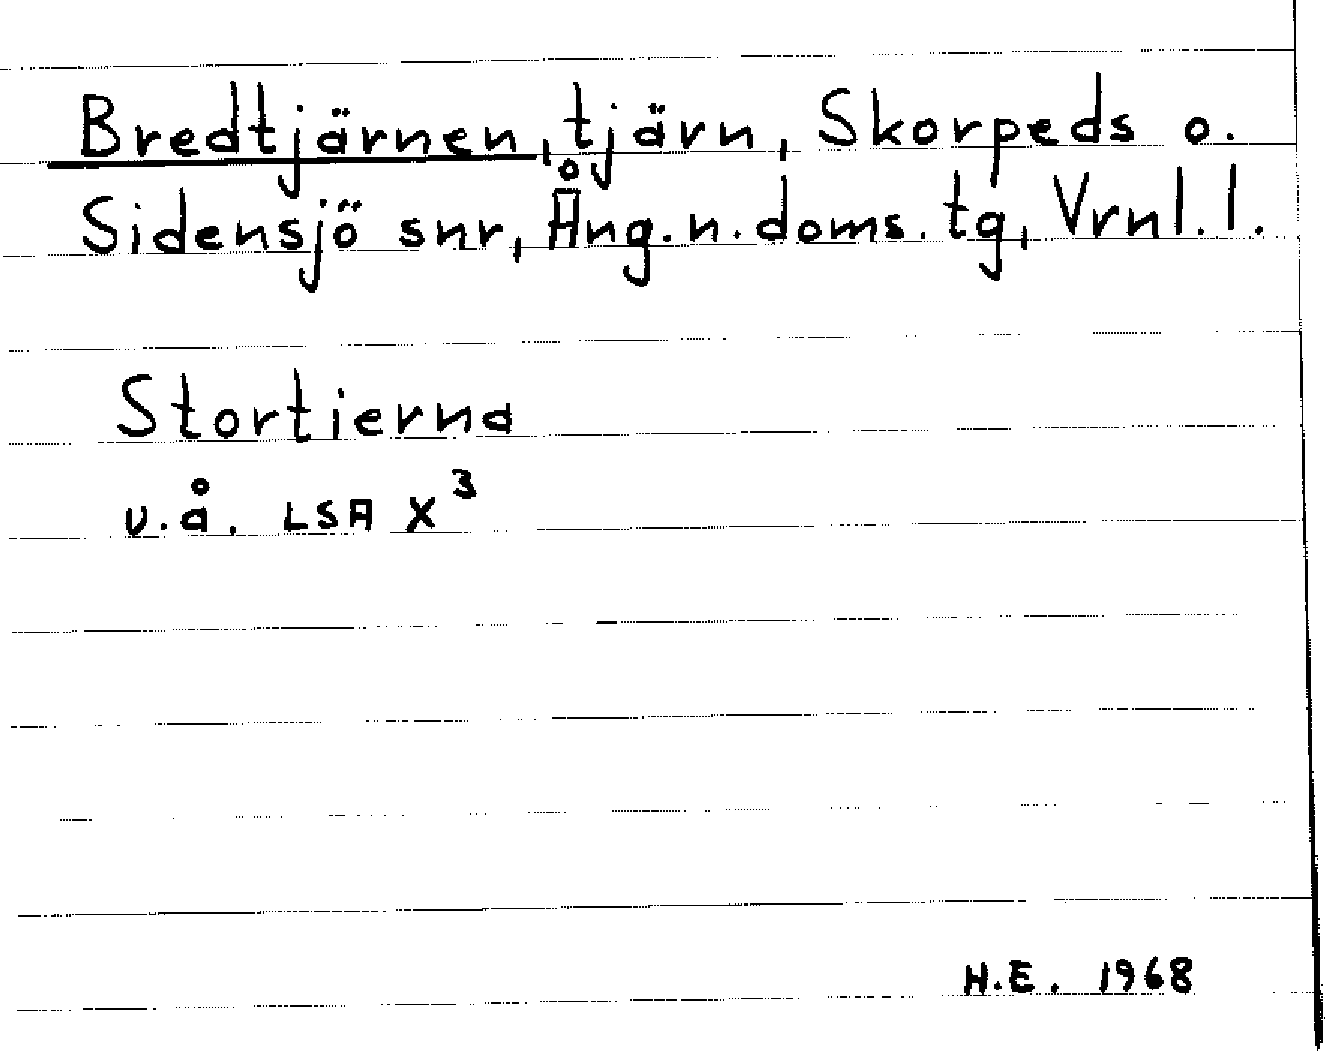 Bredtjärnen, tjärn, Skorpeds o.
Sidensjö snr, Ång.n.doms.tg, Vrnl.l.
Stortierna
u.å. LSA X³
H.E. 1968